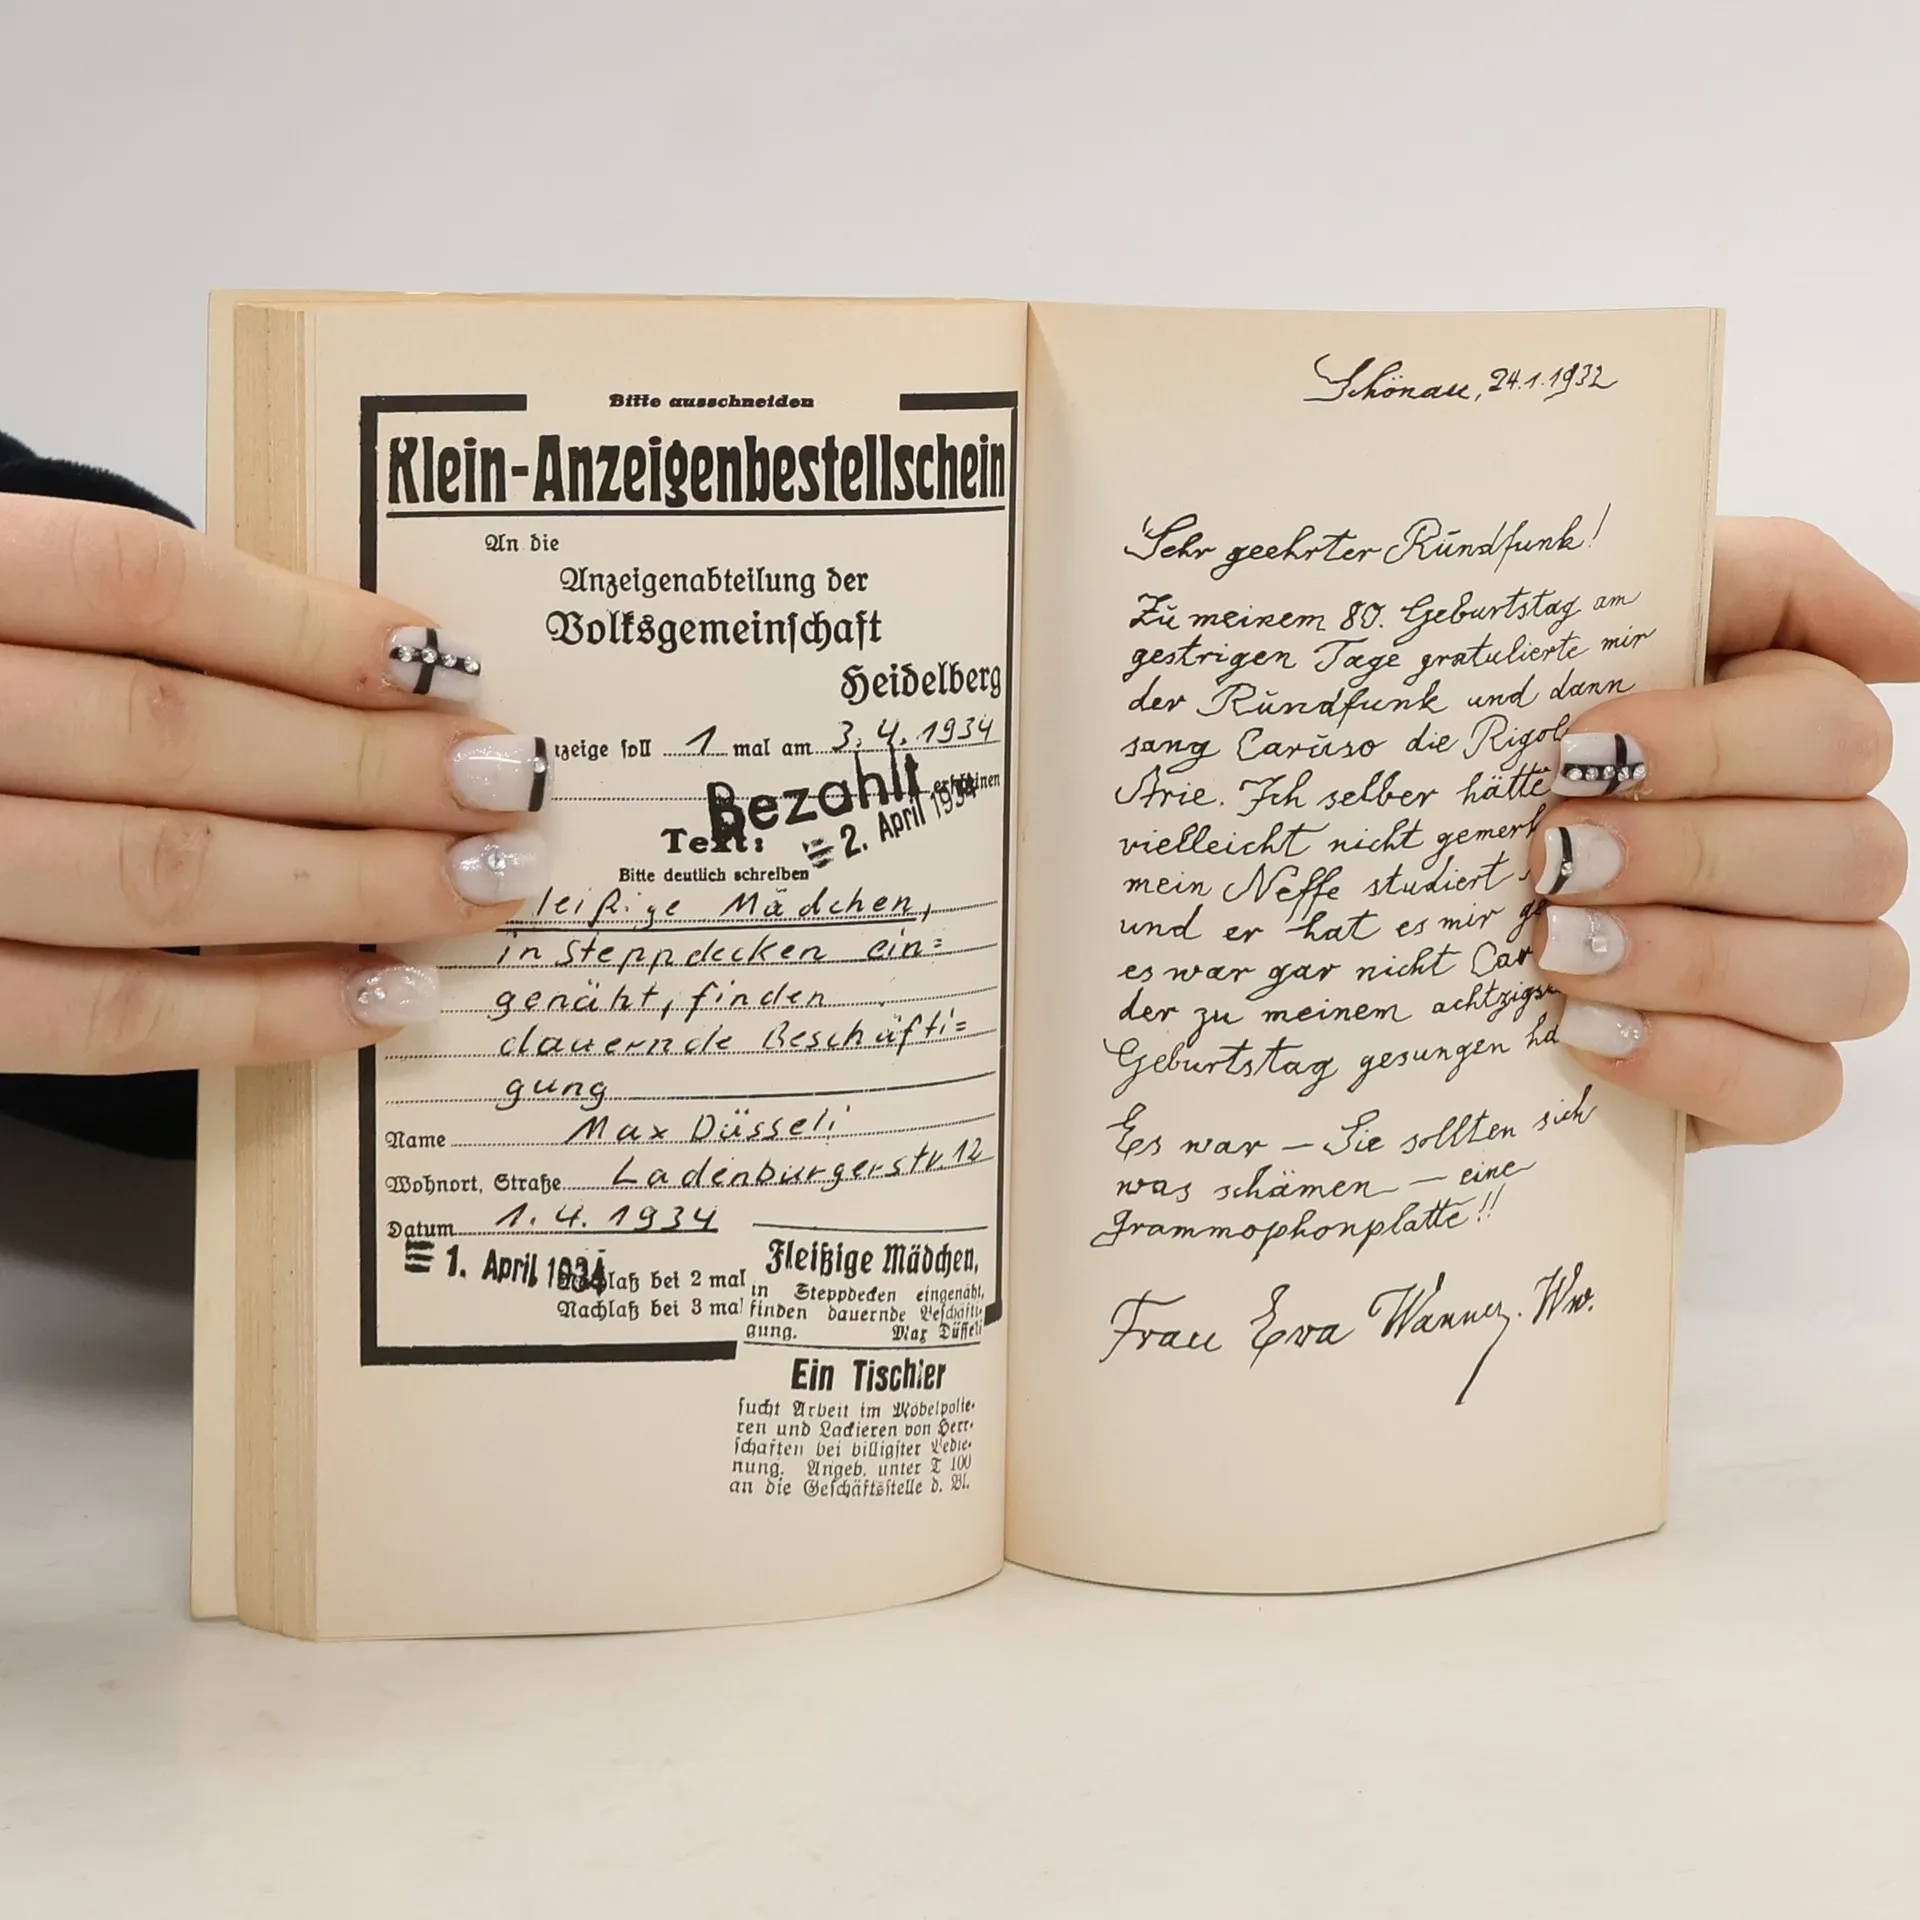 Bitte ausschneiden
Klein-Anzeigenbestellschein
An die
Anzeigenabteilung der
Volksgemeinschaft
Heidelberg
zeige soll 1 mal am 3. 4. 1934
erscheinen
Bezahlt
2. April 1934
Text:
Bitte deutlich schreiben
leißige Mädchen,
in Steppdecken ein=
genäht, finden
dauernde Beschäfti=
gung
Name Max Düsseli
Wohnort, Straße Ladenburgerstr. 12
Datum 1. 4. 1934
1. April 1934
Nachlaß bei 2 mal
Nachlaß bei 3 mal
Fleißige Mädchen,
in Steppdecken eingenäht,
finden dauernde Beschäfti-
gung. Max Düsseli
Ein Tischler
sucht Arbeit im Möbelpolie-
ren und Lackieren von Herr-
schaften bei billigster Bedie-
nung. Angeb. unter T 100
an die Geschäftsstelle d. Bl.
Schönau, 24.1.1932
Sehr geehrter Rundfunk!
Zu meinem 80. Geburtstag am
gestrigen Tage gratulierte mir
der Rundfunk und dann
sang Caruso die Rigol
Arie. Ich selber hätte
vielleicht nicht gemerk
mein Neffe studiert
und er hat es mir ge
es war gar nicht Car
der zu meinem achtzigs
Geburtstag gesungen ha
Es war – Sie sollten sich
was schämen – eine
Grammophonplatte!!
Frau Eva Wanner. Ww.